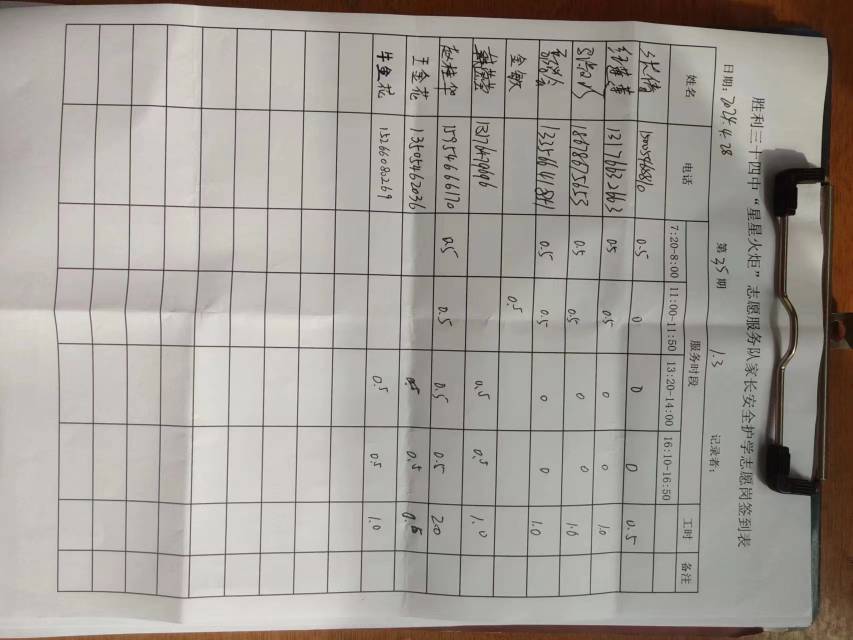 胜利三十四中“星星火炬”志愿服务队家长安全护学志愿岗签到表
日期：2024.4.28 第35期 1.3 记录者：
姓名 电话 服务时段 工时 备注
7:20-8:00 11:00-11:50 13:20-14:00 16:10-16:50
张倩 0.5 0 0 0 0.5
0.5 0.5 0 0 1.0
18678675653 0.5 0.5 0 0 1.0
0.5 0.5 0 0 1.0
金敏 0.5
0.5 0.5 1.0
赵桂华 15954666170 0.5 0.5 0.5 0.5 2.0
王金花 13505462036 0.5 0.5
牛金花 15266080269 0.5 0.5 1.0